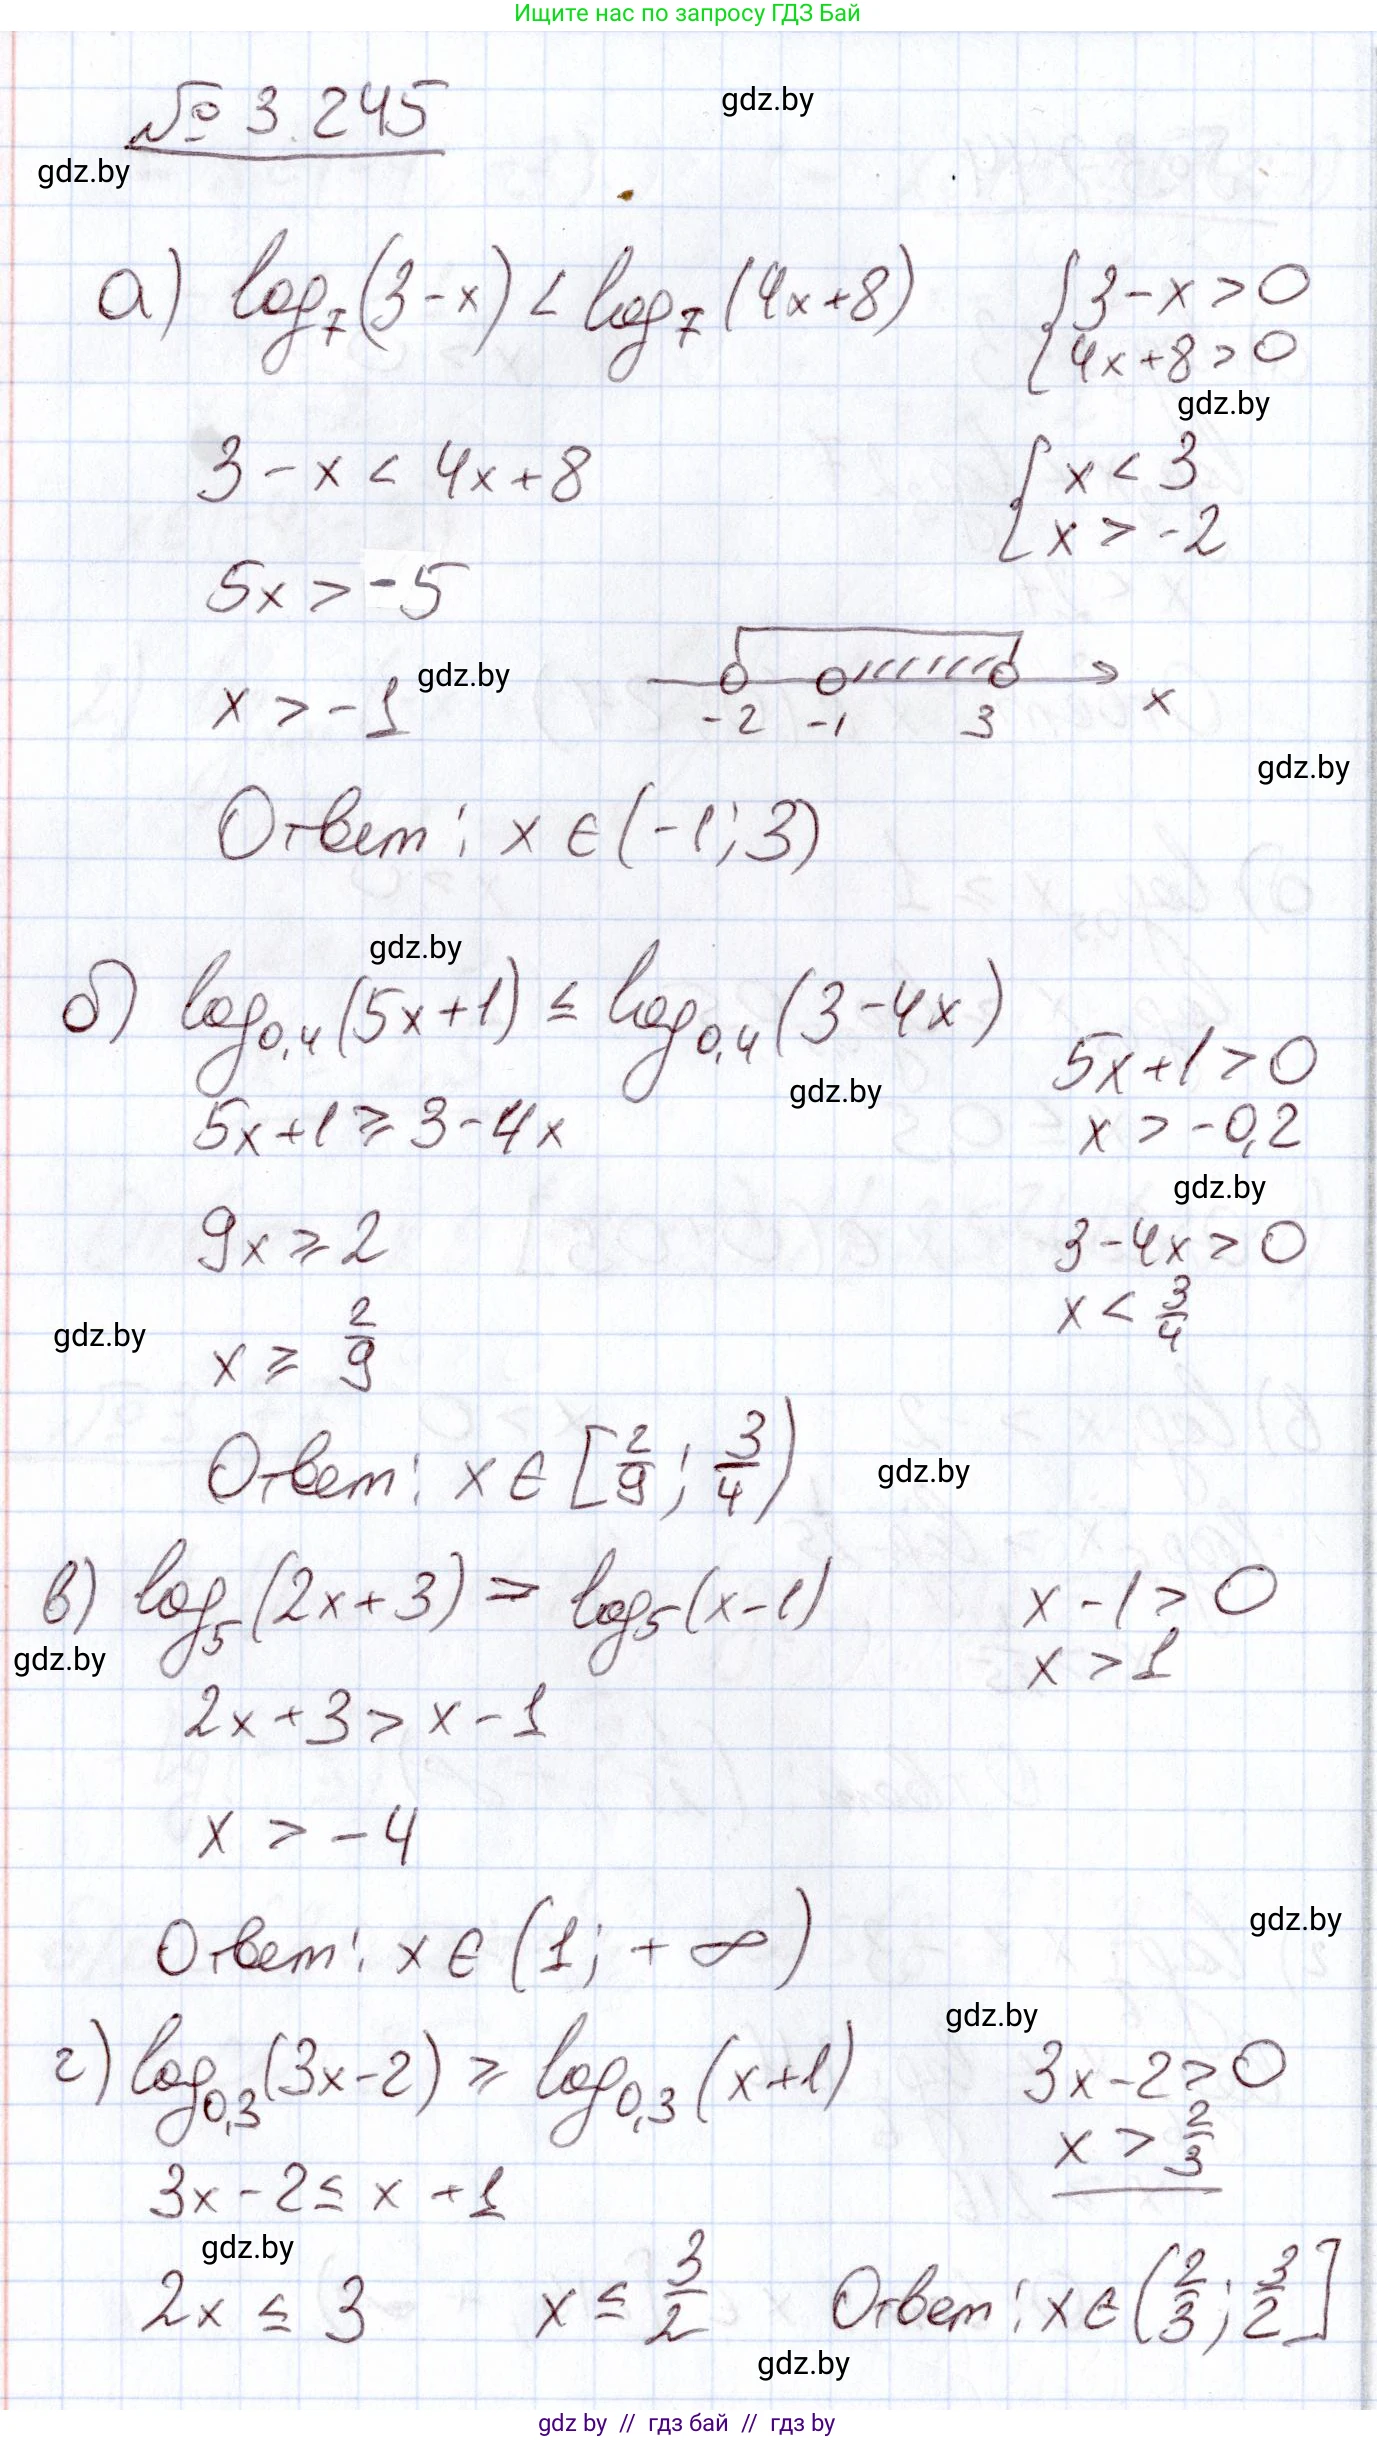 Ищите нас по запросу ГДЗ Бай
№ 3.245
gdz.by
gdz.by
а) log₇(3-x) < log₇(4x+8)
{3-x>0
4x+8>0
gdz.by
3-x < 4x+8
{x < 3
x > -2
5x > -5
x > -1
gdz.by
-2 -1 3 x
gdz.by
Ответ: x ∈ (-1; 3)
gdz.by
б) log₀,₄(5x+1) ≤ log₀,₄(3-4x)
5x+1>0
gdz.by
5x+1 ≥ 3-4x
x > -0,2
gdz.by
9x ≥ 2
3-4x > 0
x < 3/4
gdz.by
x ≥ 2/9
Ответ: x ∈ [2/9; 3/4)
gdz.by
в) log₅(2x+3) > log₅(x-1)
x-1 > 0
gdz.by
x > 1
2x+3 > x-1
x > -4
gdz.by
Ответ: x ∈ (1; +∞)
gdz.by
г) log₀,₃(3x-2) ≥ log₀,₃(x+1)
3x-2>0
x > 2/3
3x-2 ≤ x+1
gdz.by
2x ≤ 3
x ≤ 3/2
Ответ: x ∈ (2/3; 3/2]
gdz.by
gdz by // гдз бай // gdz by